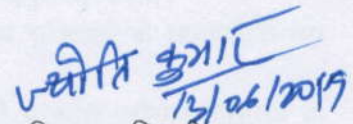 ज्योति कुमार
13/06/2019